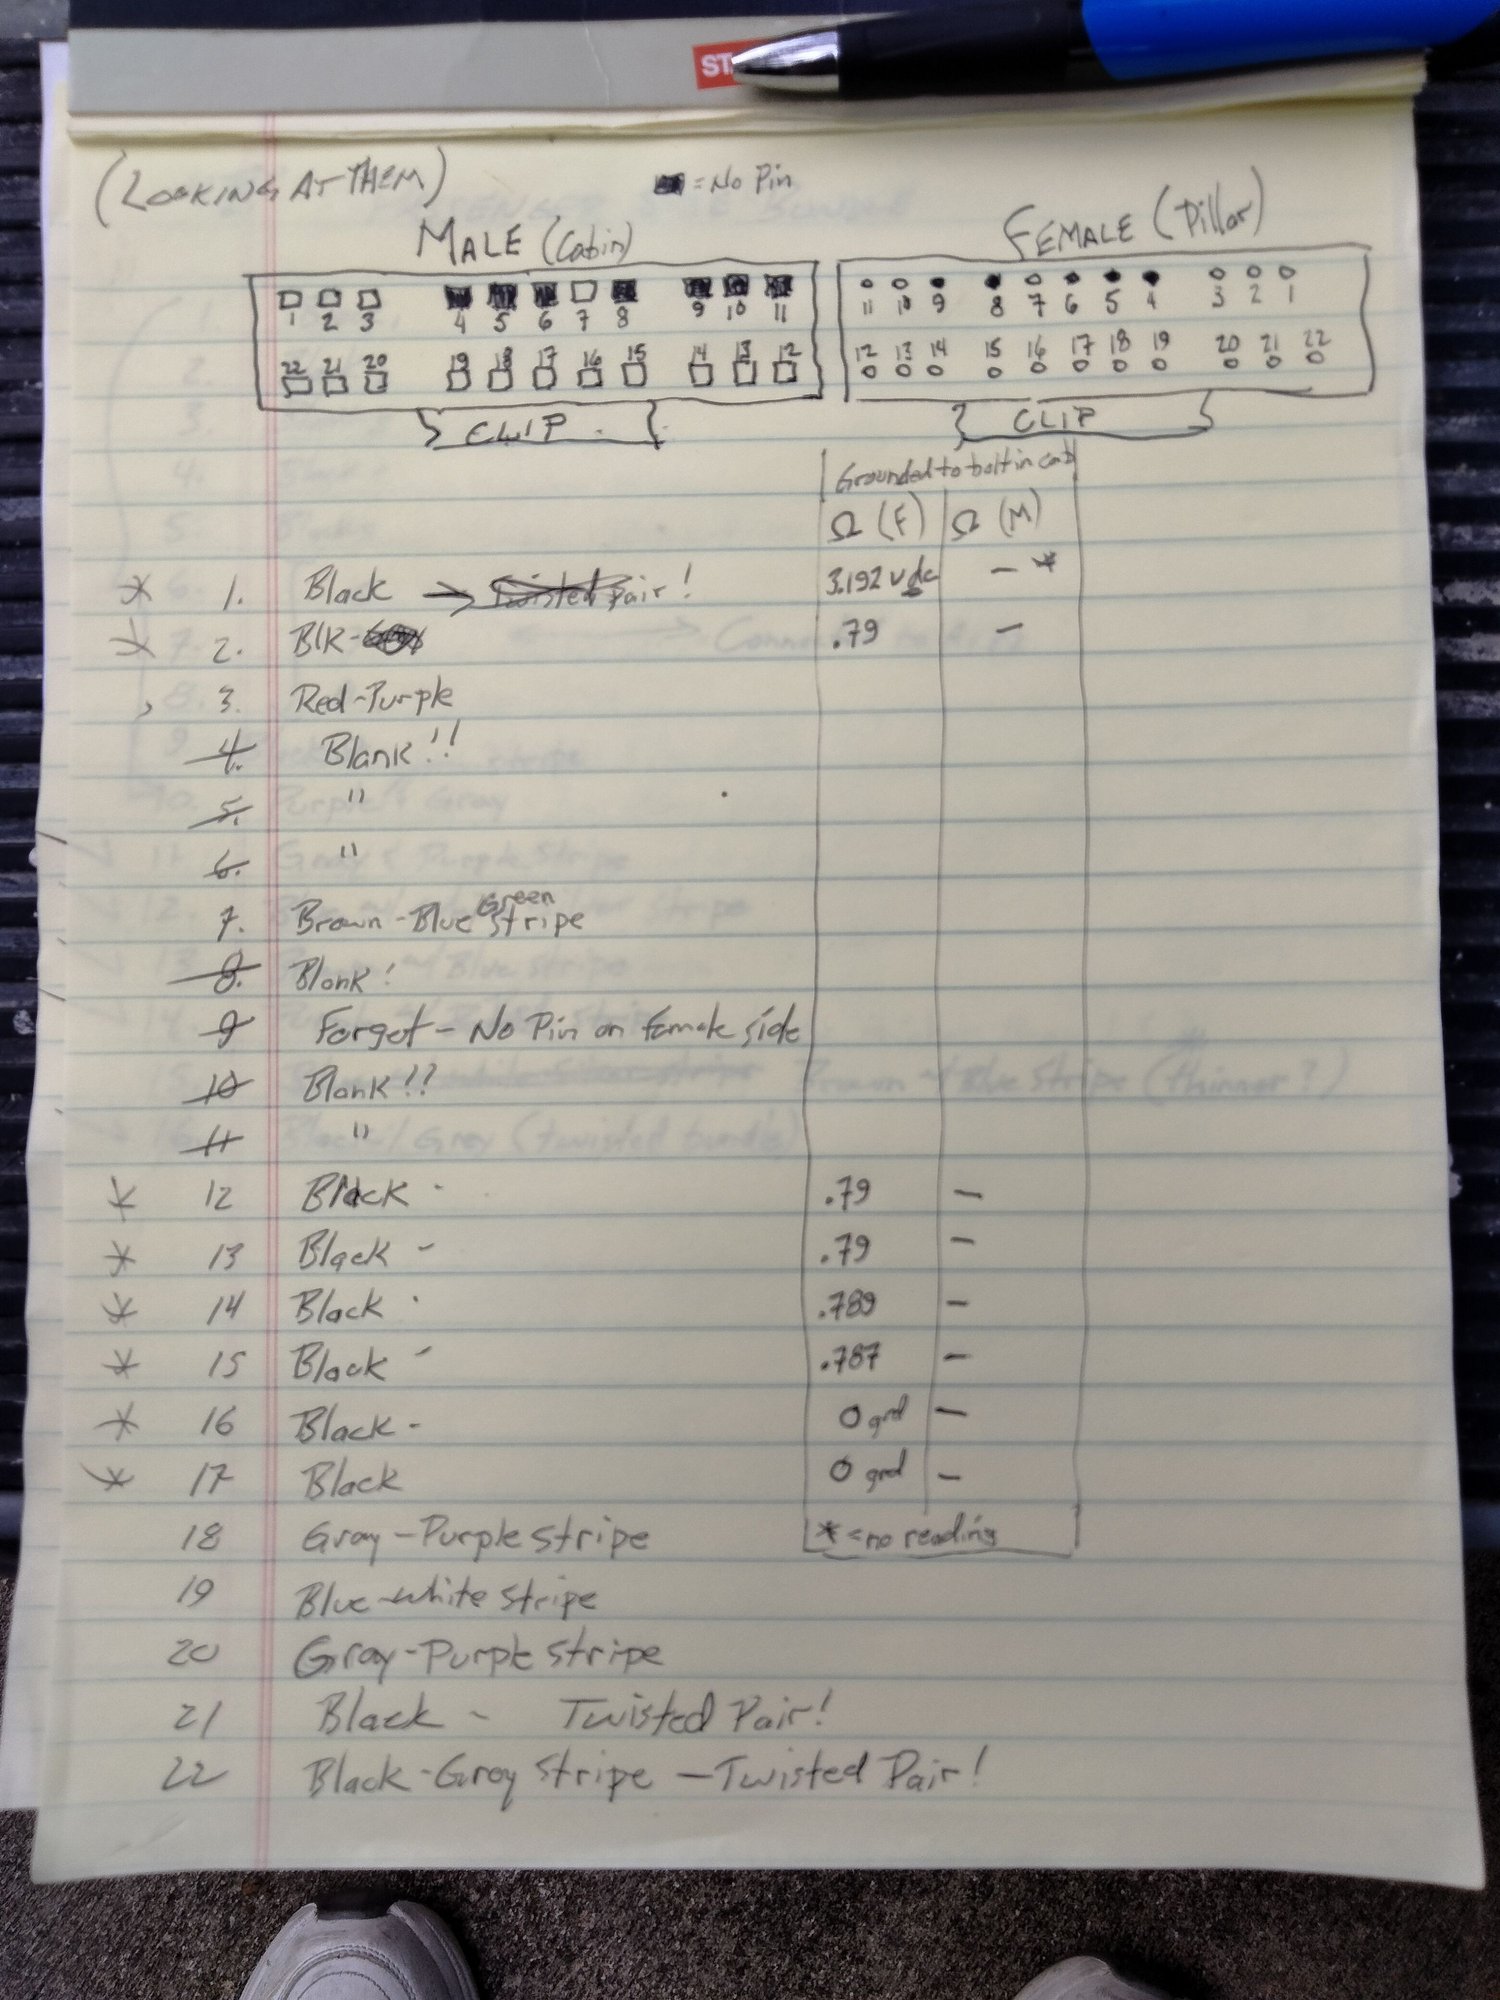 ST
(LOOKING AT THEM)
= No Pin
MALE (Cabin)
FEMALE (Pillar)
1 2 3 4 5 6 7 8 9 10 11
11 10 9 8 7 6 5 4 3 2 1
22 21 20 19 18 17 16 15 14 13 12
12 13 14 15 16 17 18 19 20 21 22
CLIP
CLIP
Grounded to bolt in cab
Ω (F) Ω (M)
* 1. Black → Twisted Pair! 3.192 vdc — *
* 2. Blk- .79 —
3. Red-Purple
4. Blank!!
5. "
6. "
7. Brown-Blue Green Stripe
8. Blank!
9 Forgot - No Pin on female side
10 Blank!!
11 "
* 12 Black - .79 —
* 13 Black - .79 —
* 14 Black - .789 —
* 15 Black - .787 —
* 16 Black - 0 grd —
* 17 Black 0 grd —
18 Gray-Purple stripe
* = no reading
19 Blue-white stripe
20 Gray-Purple stripe
21 Black - Twisted Pair!
22 Black-Grey stripe - Twisted Pair!